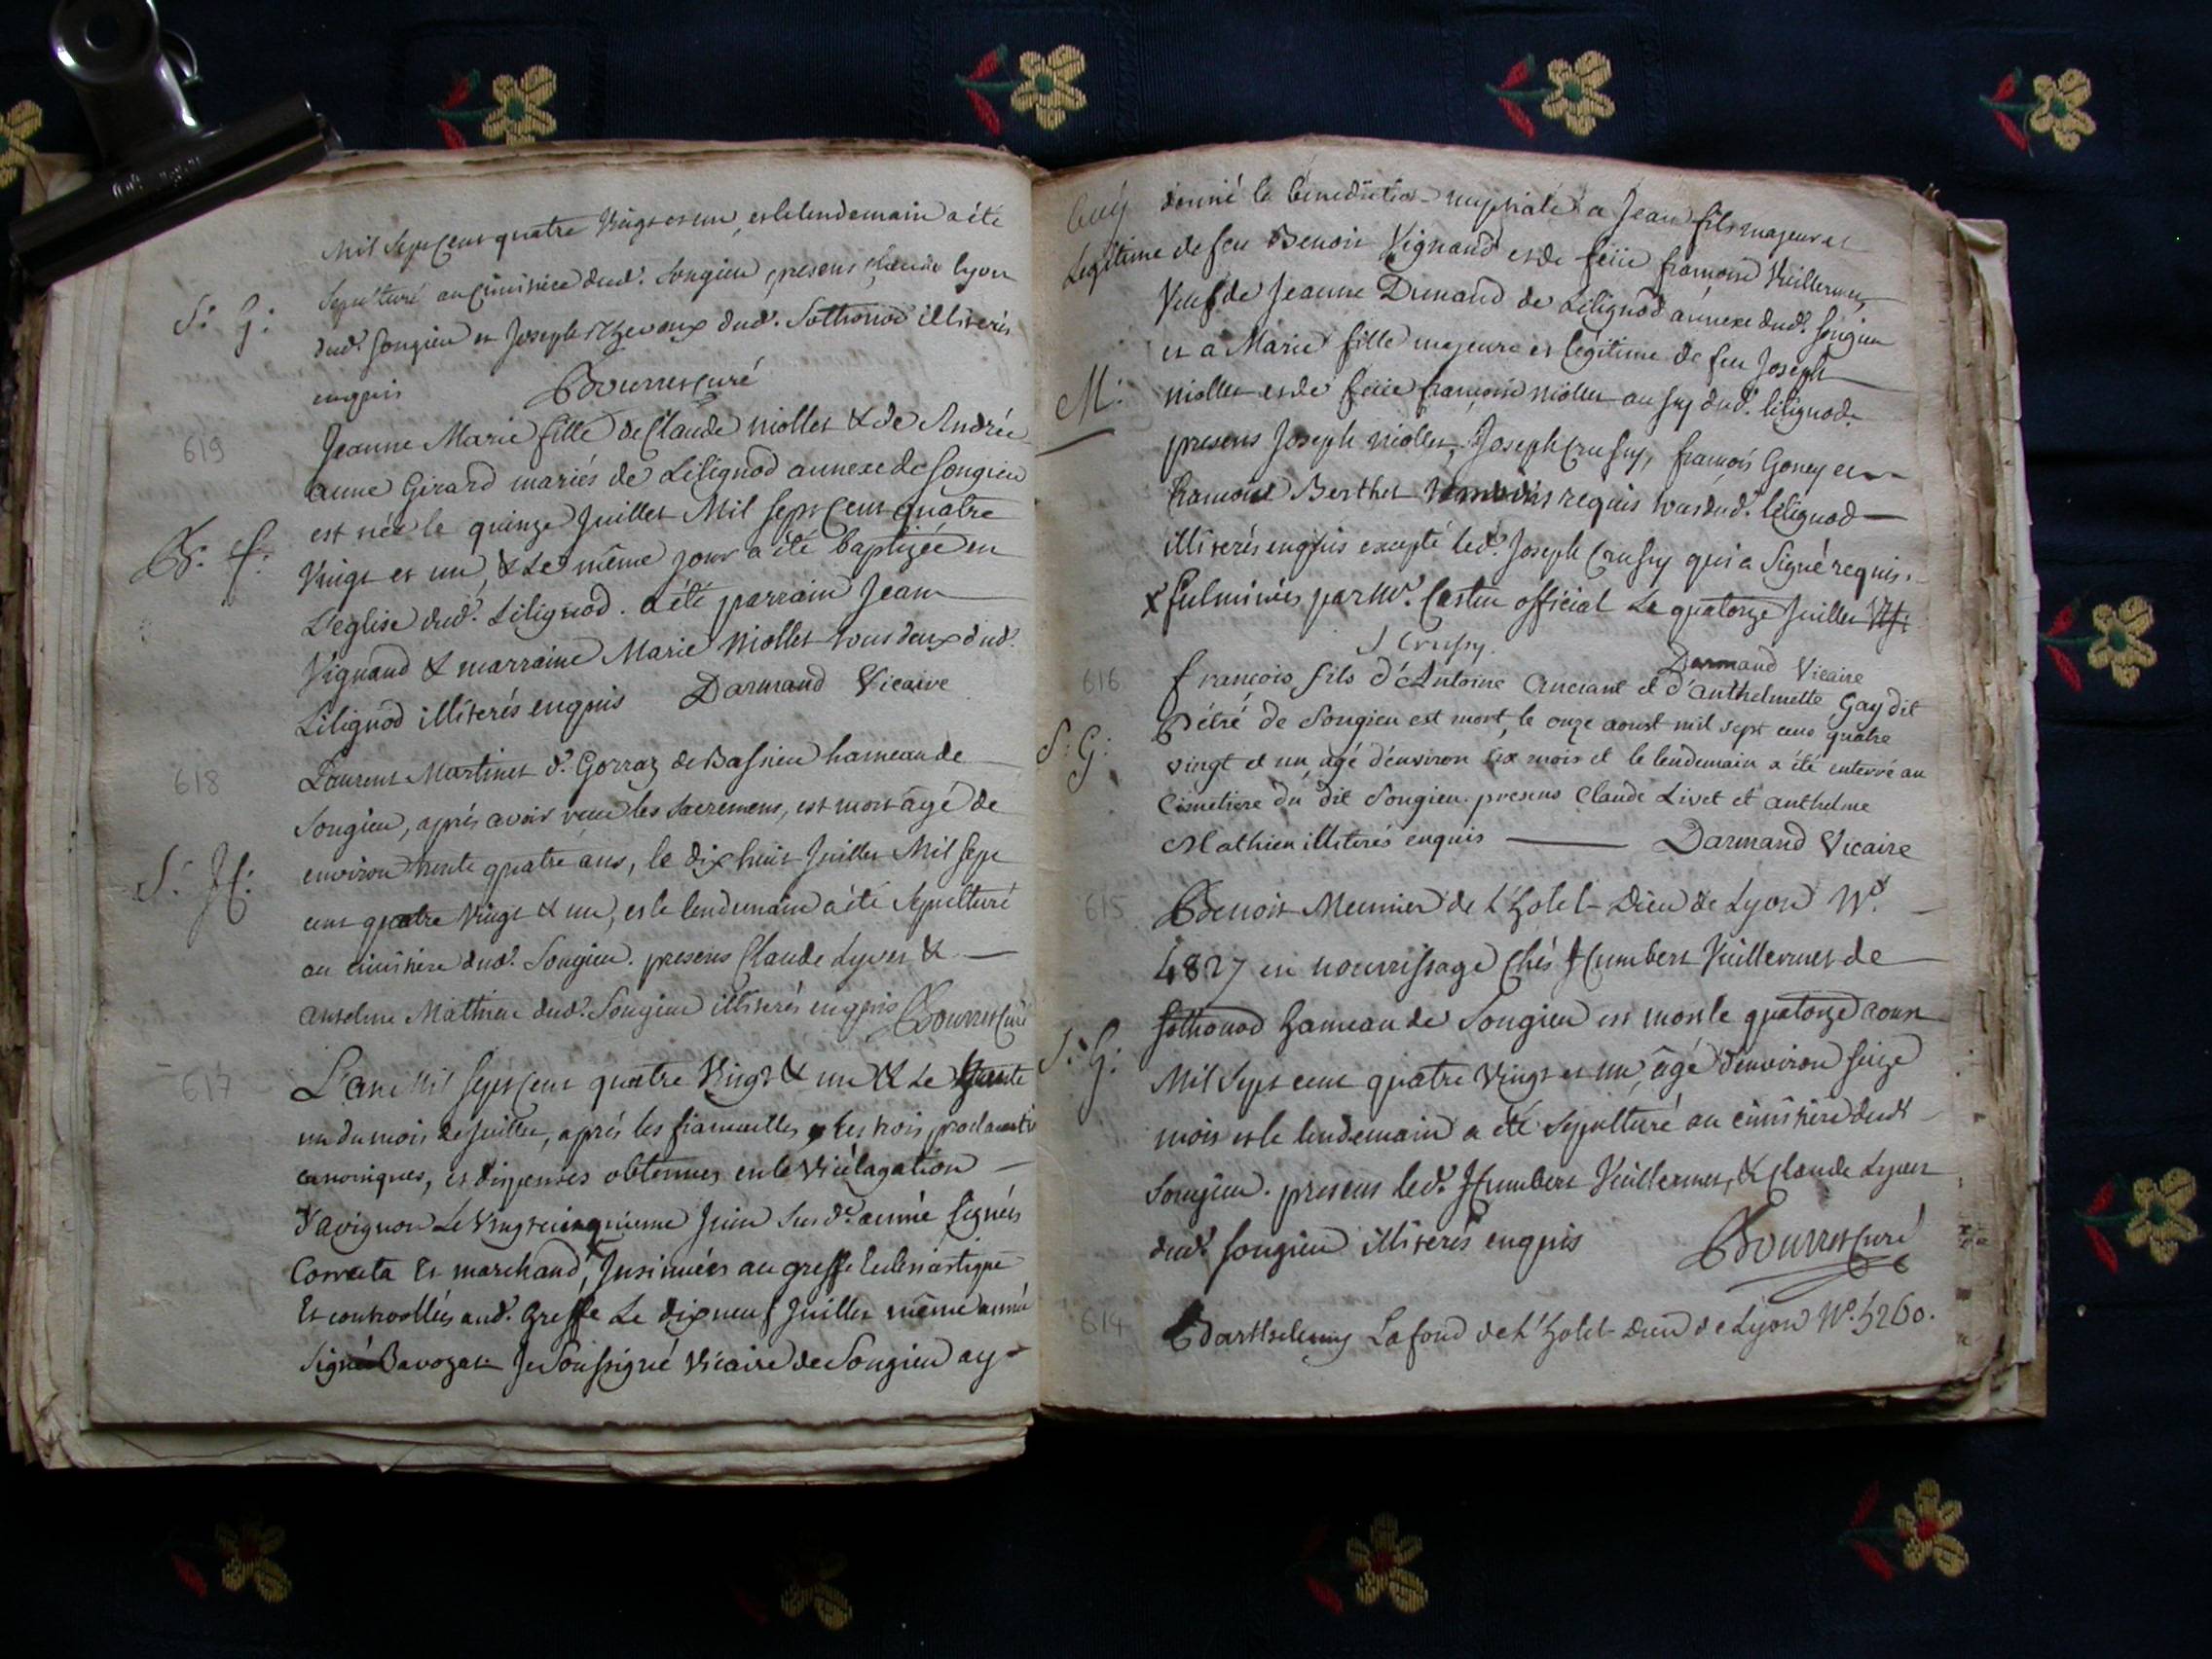 Mil Sept Cent quatre Vingt et un, et le lendemain a été
S: G: Sepulturé au cimitiere dud. Songieu, presens Claude lyvet
dud. Songieu et Joseph Thevoux dud. Sothonod illiterés
enquis Bourret curé
619 Jeanne Marie fille de Claude Niollet & de Andrée
anne Girard mariés de Lilignod annexe de Songieu
est née le quinze Juillet Mil sept Cent quatre
B: f: Vingt et un, & Le même jour a été baptizée en
L'eglise dud. Lilignod. a été parrain Jean
Vignand & marraine Marie Niollet tous deux dud.
Lilignod illiterés enquis Darmand Vicaire
618 Laurent Martinet d. Gorraz de Bassieu hameau de
Songieu, après avoir receu les Sacremens, est mort agé de
environ trente quatre ans, le dix huit Juillet Mil Sept
S: H: cent quatre Vingt & un, et le lendemain a été Sepulturé
au cimitiere dud. Songieu. presens Claude Lyvet &
Anselme Mathieu dud. Songieu illiterés enquis Bourret curé
617 L'an Mil Sept Cent quatre Vingt & un & Le trente
un du mois de Juillet, après les fiancailles, les trois proclamat
canoniques, et dispenses obtenues en la Vicélagation
d'avignon Le Vingtcinquieme Juin Sus d. année Signés
Et marchand, Insinuées au greffe Eclesiastique
Et controllées aud. Greffe Le dix neuf Juillet même année
Signé Bavozat Je Soussigné Vicaire de Songieu ay
donné la bénédiction nuptiale a Jean fils majeur et
Legitime de feu Benoit Vignand et de feüe francoise Vuillermet,
Veuf de Jeanne Dunand de Lilignod annexe dud. Songieu
et a Marie fille majeure et legitime de feu Joseph
M: Niollet et de feüe francoise Niollet au dud. lilignod.
presens Joseph Niollet, Joseph Crussy, francois Goney et
francois Berthet requis tous dud. lilignod
illiterés enquis excepté led. Joseph Crussy qui a Signé requis.
x fulminés par Mr. Castin official Le quatorze Juillet
J Crussy. Darmand Vicaire
616 francois fils d'Antoine Anciant et d'anthelmette Gay dit
Pétré de Songieu est mort le onze aoust mil sept cent quatre
S: G: vingt et un, agé d'environ six mois et le lendemain a été enterré au
Cimetiere du dit Songieu. presens Claude Livet et anthelme
Mathieu illiterés enquis Darmand Vicaire
615 Benoit Meunier de L'hotel-Dieu de Lyon N°.
4827 en nourrissage chés Humbert Vuillermet de
Sothonod hameau de Songieu est mort le quatorze aoust
S: G: Mil Sept cent quatre Vingt et un, âgé d'environ seize
mois et le lendemain a été Sepulturé au cimitiere dudt
Songieu. presens led. Humbert Vuillermet, & Claude Lyvet
dud. Songieu illiterés enquis Bourret curé
614 Barthelemy Lafond de L'hotel-Dieu de Lyon N°. 5260.